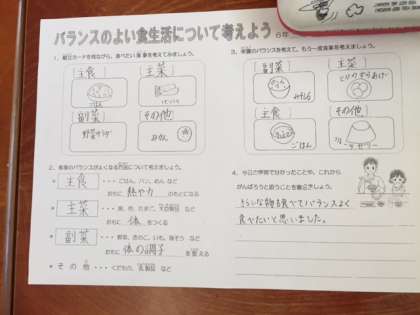 バランスのよい食生活について考えよう 6年
1. 献立カードを見ながら、食べたい食事を考えてみましょう。
主食 主菜
パン
副菜 その他
野菜サラダ
みかん
2. 食事のバランスがよくなる方法について考えましょう。
主食 ・・・ごはん、パン、めん など
おもに 熱や力 のもとになる
主菜 ・・・肉、魚、たまご、大豆製品 など
おもに 体 をつくる
副菜 ・・・野菜、きのこ、いも、海そう など
おもに 体の調子 を整える
その他 ・・・くだもの、乳製品 など
3. 栄養のバランスを考えて、もう一度食事を考えましょう。
副菜 主菜
みそしる
とりのからあげ
主食 その他
ごはん
ゼリー
4. 今日の学習で分かったことや、これから
がんばろうと思うことを書きましょう。
食べたいと思いました。